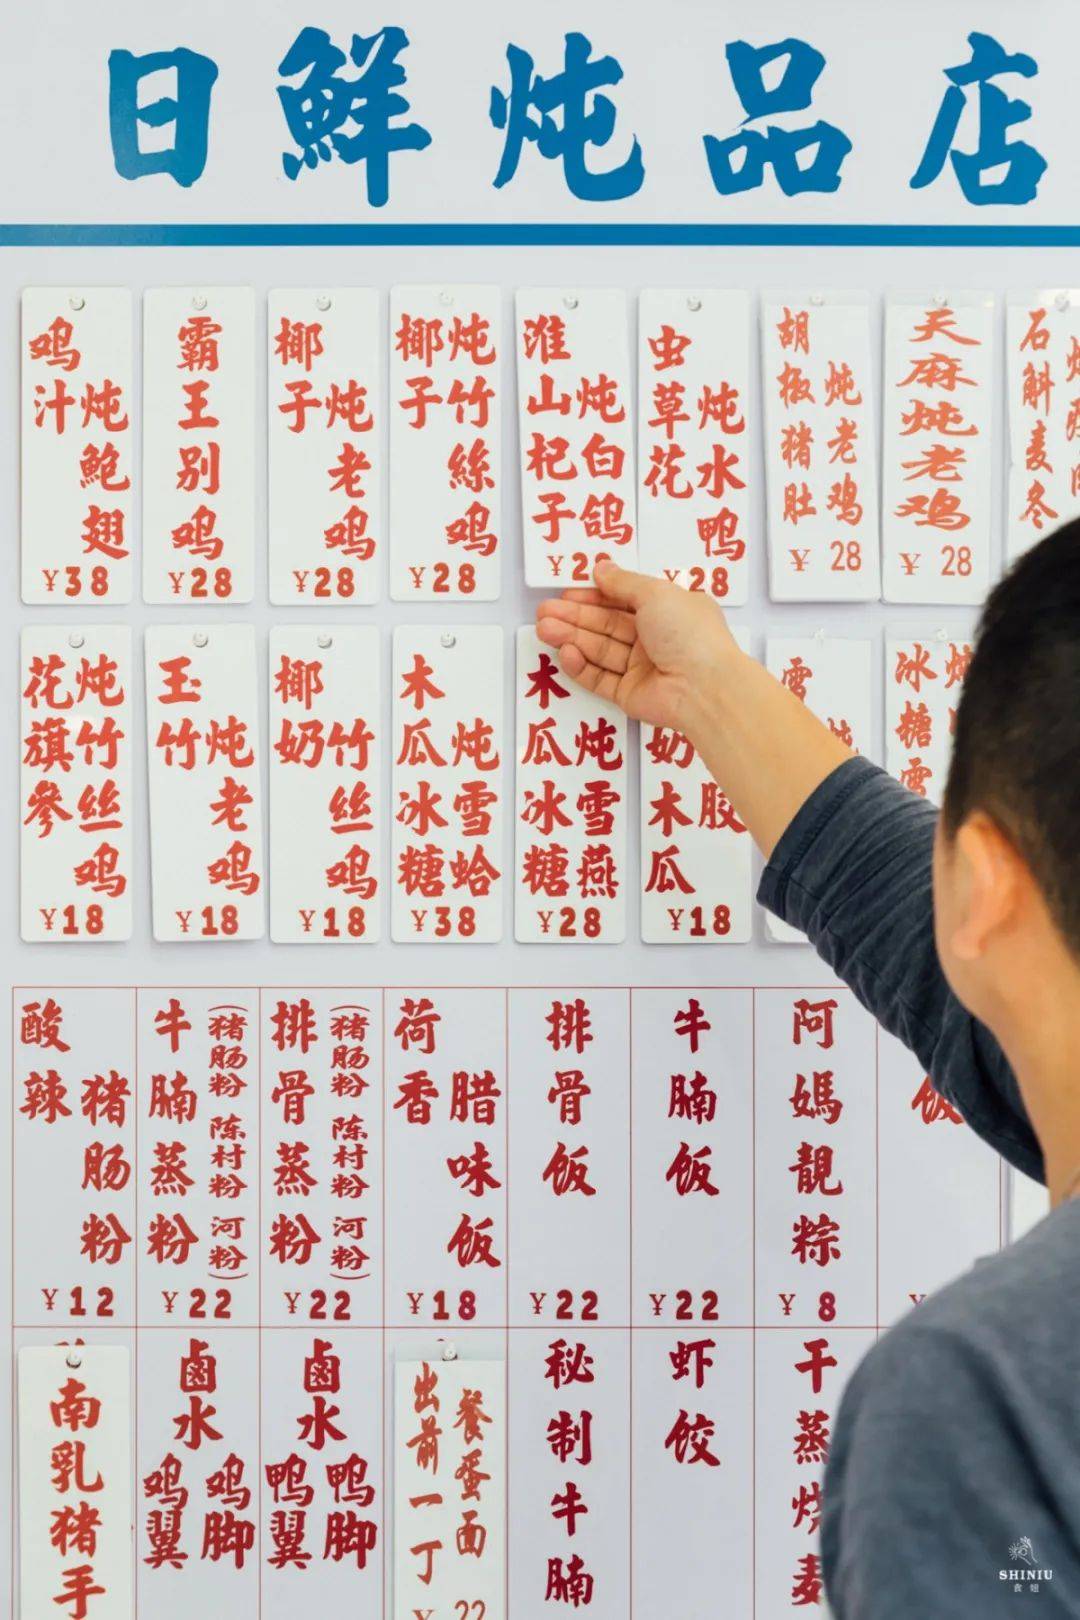 日鲜炖品店
鸡汁
炖鲍翅
¥38
霸王别鸡
¥28
椰子
炖老鸡
¥28
椰子
炖竹絲鸡
¥28
淮山杞子
炖白鸽
¥2
虫草花
炖水鸭
¥28
胡椒猪肚
炖老鸡
¥28
天麻炖老鸡
¥28
石斛麦冬
花旗參
炖竹丝鸡
¥18
玉竹
炖老鸡
¥18
椰奶
竹丝鸡
¥18
木瓜冰糖
炖雪蛤
¥38
木瓜冰糖
炖雪燕
¥28
奶木瓜
胶
¥18
雪
炖
冰糖雪
炖
酸辣
猪肠粉
¥12
牛腩蒸粉
(猪肠粉 陈村粉 河粉)
¥22
排骨蒸粉
(猪肠粉 陈村粉 河粉)
¥22
荷香
腊味饭
¥18
排骨饭
¥22
牛腩饭
¥22
阿媽靚粽
¥8
饭
¥
南乳猪手
鹵水
鸡翼
鸡脚
鹵水
鸭翼
鸭脚
出前一丁
餐蛋面
¥22
秘制牛腩
虾饺
干蒸烧麦
SHINIU
食妞